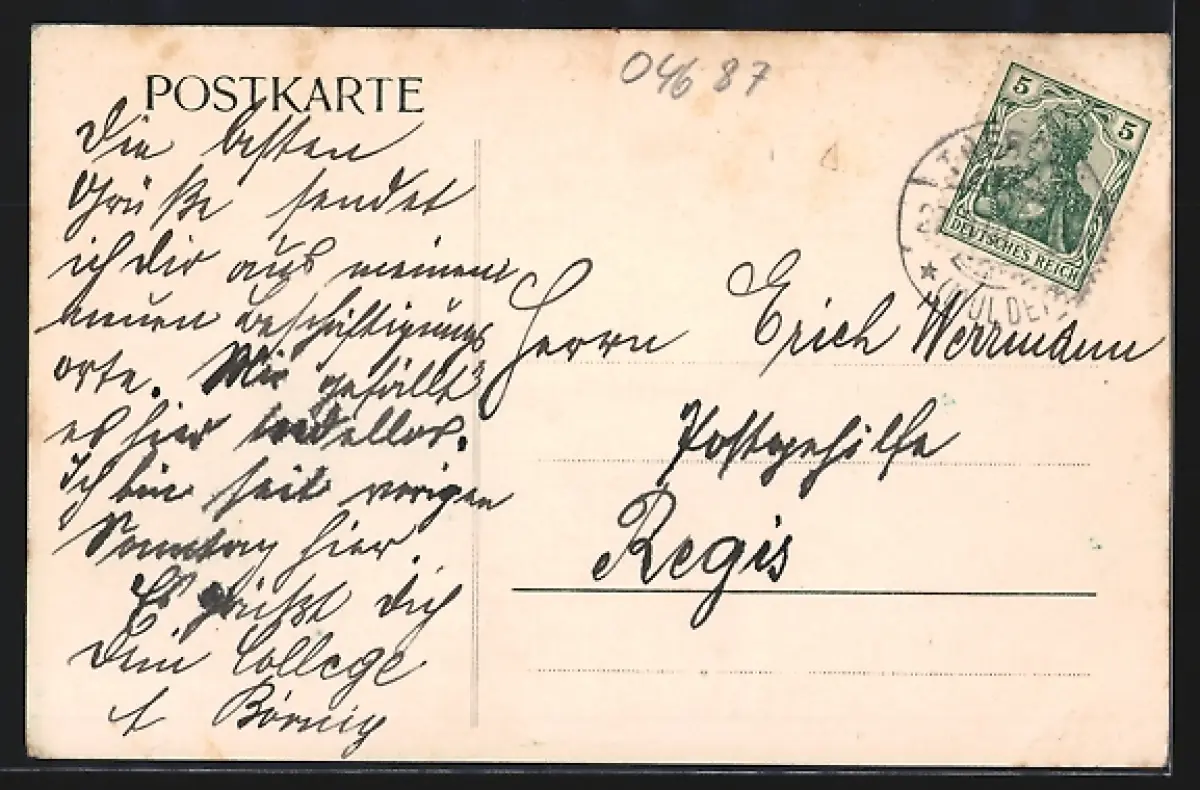 POSTKARTE
04687
5
5
DEUTSCHES REICH
(MULDE)
Die besten
Grüße sendet
ich dir aus meinem
neuen Beschäftigungs
orte. Mir gefällt
es hier tadellos.
Ich bin seit vorigen
Sonntag hier.
Es grüßt dich
Dein College
Börnig
Herrn Erich
Postgehilfe
Regis